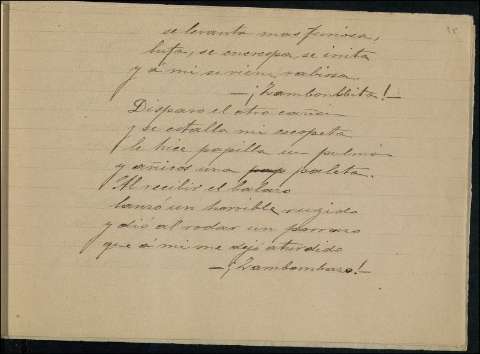 se levanta mas furiosa,
bufa, se encrespa, se irrita
y á mi se viene, rabiosa
—¡Zambombita!—
Disparo el otro cañon
y se estalla mi escopeta
le hice papilla un pulmon
y añicos una paleta.
Al recibir el balazo
lanzó un horrible rugido
y dió al rodar un porrazo
que á mi me dejó aturdido
—¡Zambombazo!—